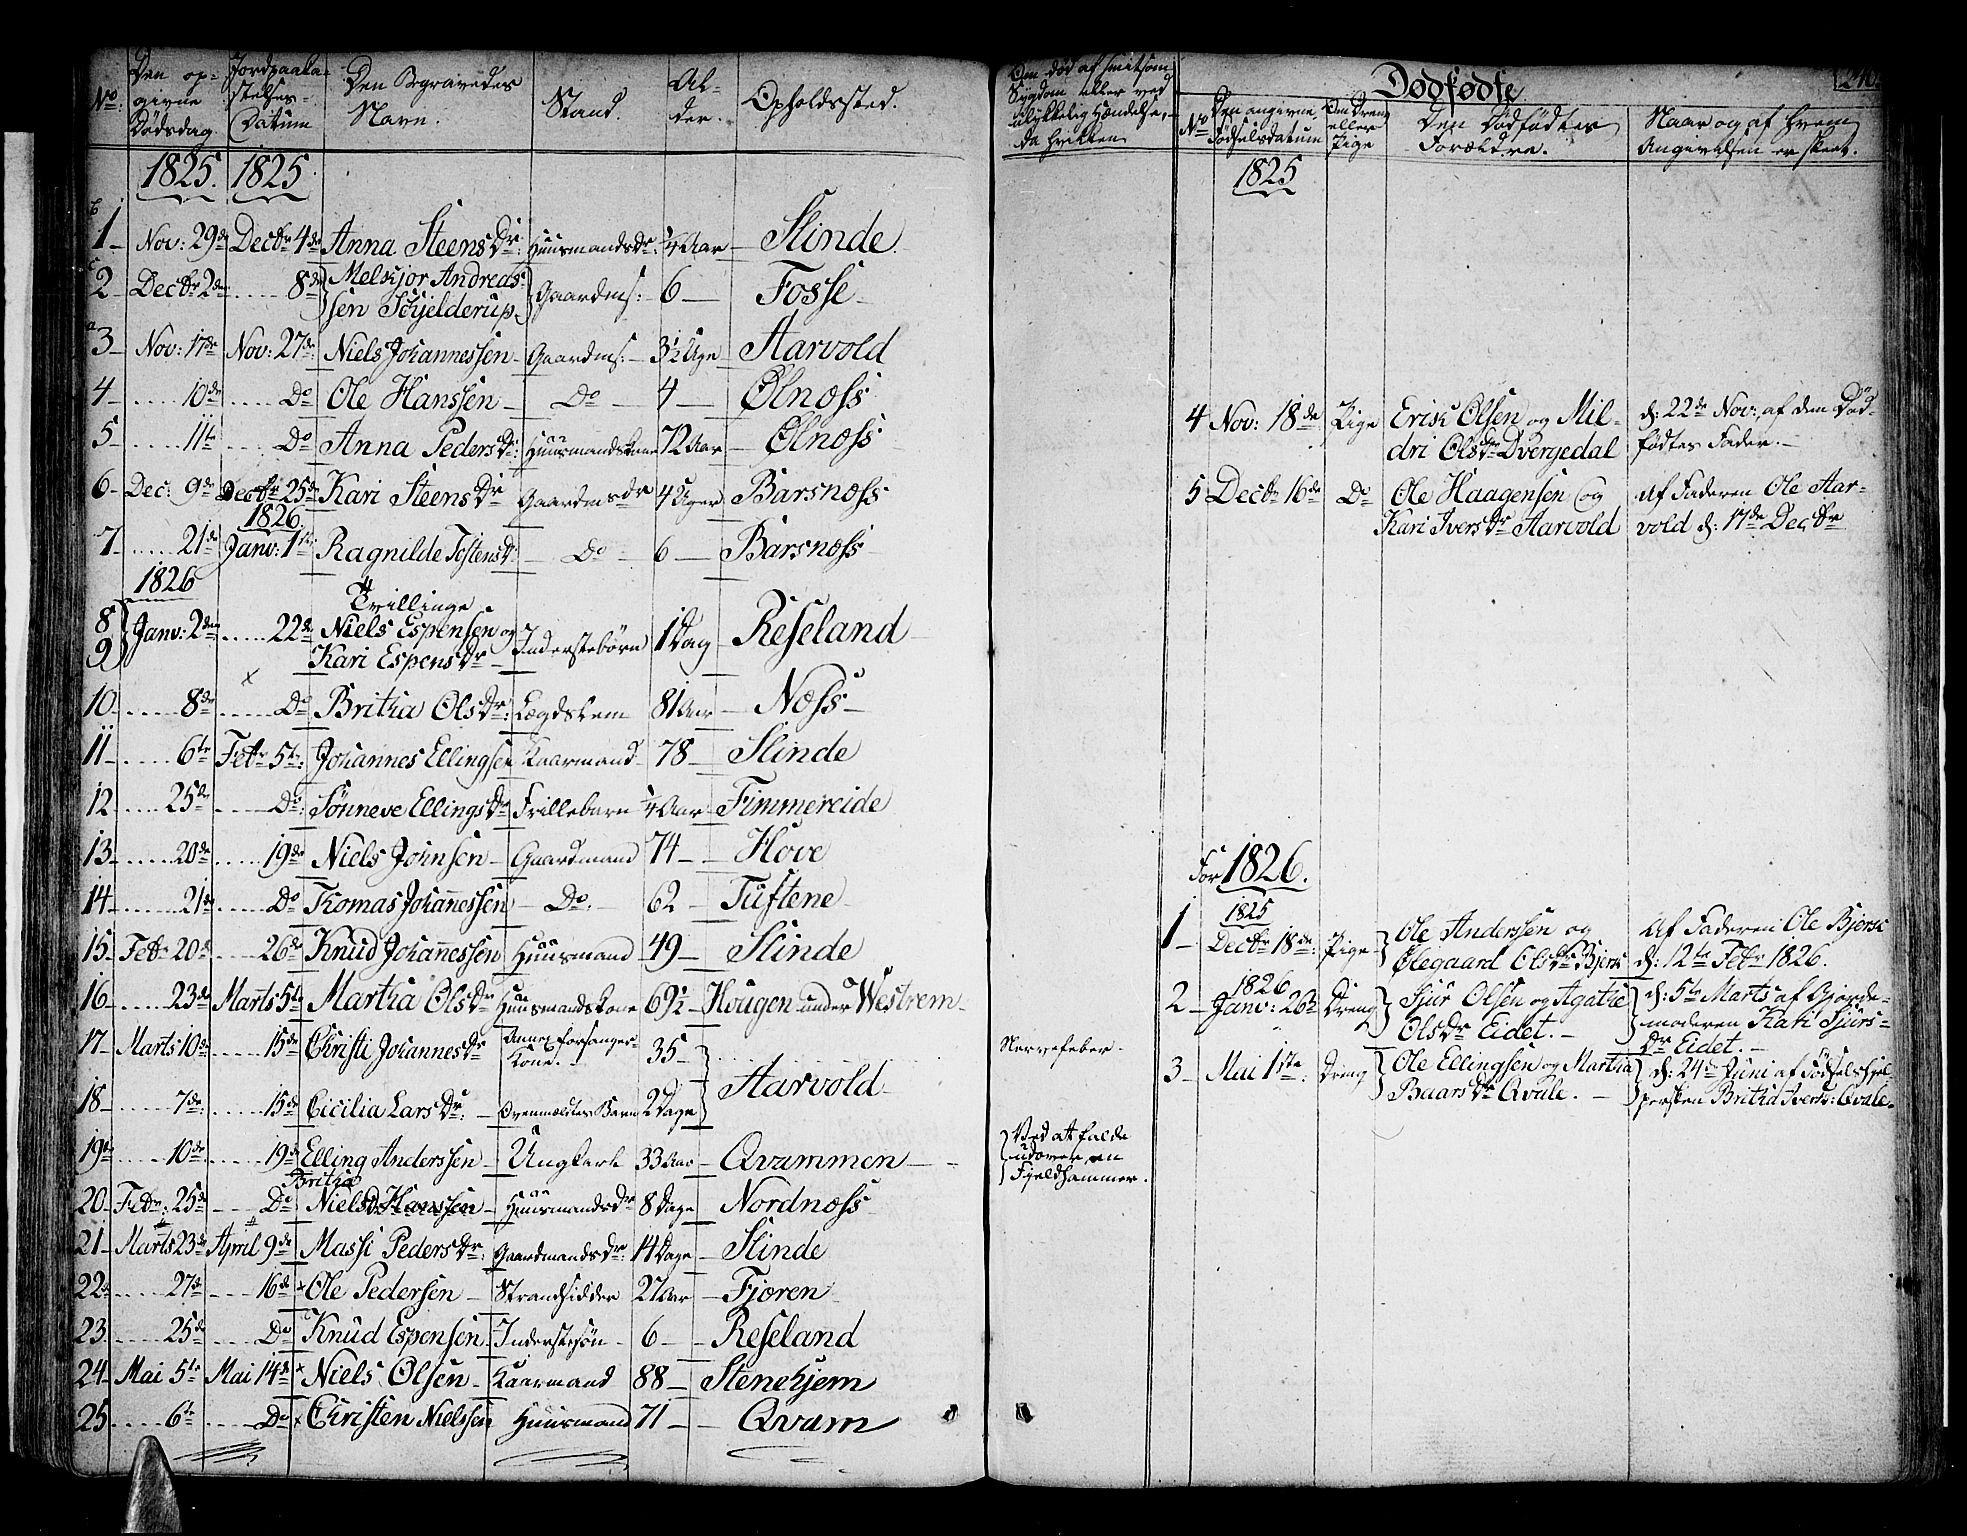 No: Den opgivne Dødsdag. Jordpaakastelses-Datum Den Begravedes Navn. Stand. Alder. Opholdssted.
1825. 1825.
b 1 Nov: 29de Decbr 4de Anna Steensdr: Huusmandsdr: 1/4 Aar Slinde
c 2 Decbr 2den ..... 8de Melkjor Andreassen Schjelderup Gaardms: 6 Fosse
a 3 Nov: 17de Nov: 27de Niels Johannessen Gaardms: 3 1/2 Uge Aarvold
4 ..... 10de .... Do Ole Hanssen Do 4 Ølnøss
5 ..... 11te .... Do Anna Pedersdr: Huusmandskone 72 Aar Ølnøss
6 Dec: 9de Decbr 25de Kari Steensdr Gaardmsdr 4 Uger Barsnøss
1826
7 ..... 21de Janv: 1ste Ragnilde Tostensdr Do 6 Barsnøss
1826
Tvillinge
8 9 Janv: 2den ..... 22de Niels Espensen og Kari Espensdr Inderstebørn 1 Dag Reseland
10 ..... 8de ..... Do Britha Olsdr: Lægdslem 81 Aar Næss
11 ..... 6te Febr 5te: Johannes Ellingsen Kaarmand 78 Slinde
12 ..... 25de ..... Do: Sønneve Ellingsdr Frillebarn 1/4 Aar Fimmereide
13 ..... 20de ..... 19de Niels Johnsen Gaardmand 74 Hove
14 ..... 21de ..... Do Thomas Johanessen Do. 62 Tuftene
15 Febr 20de ..... 26de Knud Johanessen Huusmand 49 Slinde
16 ..... 23de Marts 5te Martha Olsdr Huusmandskone 69 1/2 Hougen under Westrem
17 Marts 10de ..... 15de Christi Johannesdr Annexforsanger-Kone. 35
18 ..... 7de: ..... 15de Cicilia Larsdr: Barn 2 Dage Aarvold
19 ..... 10de ..... 19de Elling Anderssen Ungkarl 33 Aar Qvammen
Britha
20 Febr: 25de ..... Do Nielsd Hanssen Huusmandsdr 8 Dage Nordnøss
21 Marts 23de April 9de Massi Pedersdr: Gaardmandsdr: 14 Dage Slinde
22 ..... 27de ..... 16de Ole Pedersen Strandsidder 27 Aar Fjoren
23 ..... 25de ..... Do Knud Espensen Inderstesøn 6 Reseland
24 Mai 5te Mai 14de Niels Olsen Kaarmand 88 Stenehjem
25 ..... 6te ..... Do Christen Nielssen Huusmand 71 Qvam
Om død af smitsom
Sygdom eller ved
ulykkelig Hændelse,
da hvilken
Nervefeber.
Ved at falde
udover en
Fjeldhammer.
Dødfødte
240
No Den angivne Fødselsdatum Om Dreng eller Pige Den Dødfødtes Forældre. Naar og af hvem Angivelsen er skeet.
1825
4 Nov: 18de Pige Erik Olsen og Mildri Olsdr Dvergedal d: 22de Nov: af den Dødfødtes Fader.
5 Decbr 16de Do Ole Haagensen og Kari Iversdr Aarvold af Faderen Ole Aarvold d: 17de Decbr
For 1826.
1825
1 Decbr 18de: Pige Ole Anderssen og Ølegaard Olsdr Bjerk Af Faderen Ole Bjerk d: 12te Febr 1826.
1826
2 Janv: 26de Dreng Sjur Olsen og Agathe Olsdr Eidet. d: 5te Marts af Gjordemoderen Kari Sjursdr Eidet.
3 Mai 1ste: Dreng Ole Ellingsen og Martha Baarsdr Qvale. d: 24de Juni af Fødselshjelpersken Britha Ivers: Qvale.